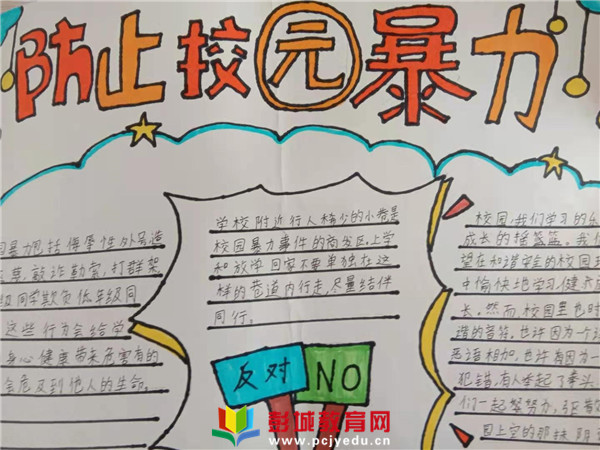 防止校园暴力
园暴力包括侮辱性外号造
敲诈勒索，打群架
级同学欺负低年级同
这些行为会给学
身心健康带来危害有的
会危及到他人的生命。
学校附近行人稀少的小巷是
校园暴力事件的高发区，上学
和放学回家不要单独在这
样的巷道内行走，尽量结伴
同行。
反对 NO
校园，我们学习的
成长的摇篮。我们
望在和谐安全的校园
中愉快地学习，健康
长。然而，校园里也时
谐的音符。也许因为一个
恶语相加，也许因为一
犯错，有人举起了拳头
们一起努力，
园上空的那抹阴
彭城教育网
www.pcjyedu.cn